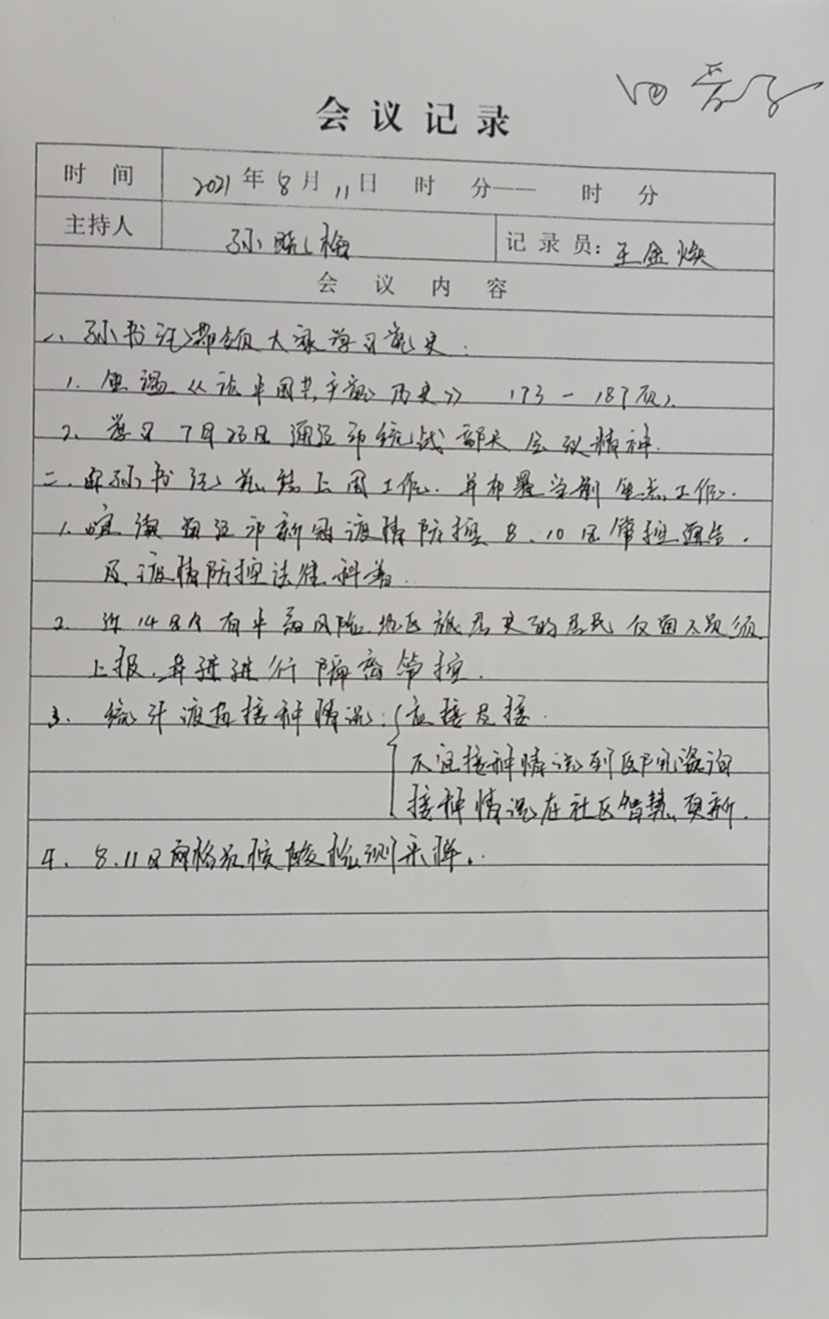 会议记录
时间 2021年8月11日 时 分—— 时 分
主持人 孙晓梅 记录员:王金焕
会议内容
一、孙书记带领大家学习党史:
1. 重温《论中国共产党历史》173-187页。
2. 学习7月23日 市统战部长会议精神.
二、由孙书记总结上周工作.并布署当前重点工作.
1. 宣读 市新冠疫情防控8.10日管控通告.
及疫情防控法律科普.
2. 近14日内有中高风险地区旅居史的居民 须
上报.并进进行隔离管控.
3. 统计疫苗接种情况:{应接尽接.
不宜接种情况到医院咨询
接种情况在社区智慧 更新.
4. 8.11日网格员核酸检测采样.